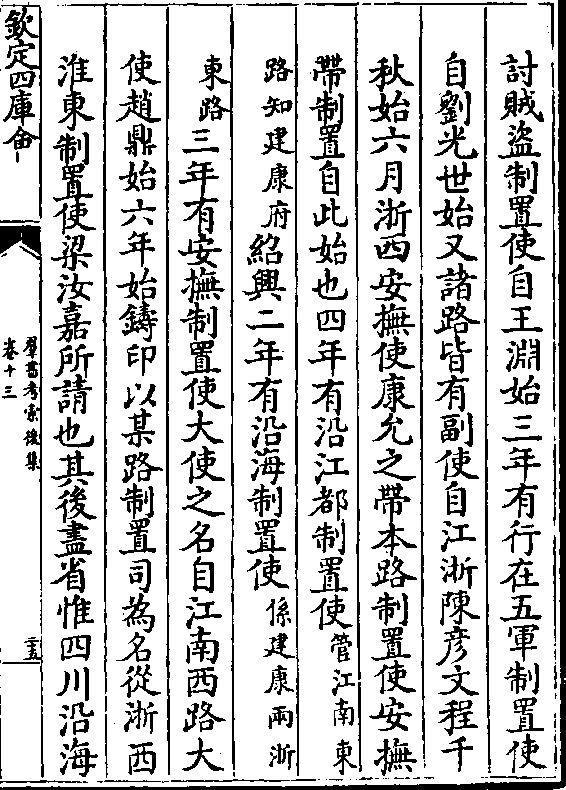 討賊盜制置使自王淵始三年有行在五軍制置使
自劉光世始又諸路皆有副使自江浙陳彦文程千
秋始六月浙西安撫使康允之帶本路制置使安撫
帶制置自此始也四年有沿江都制置使管江南東
路知建康府紹興二年有沿海制置使係建康兩浙
東路三年有安撫制置使大使之名自江南西路大
使趙鼎始六年始鑄印以某路制置司為名從浙西
淮東制置使梁汝嘉所請也其後盡省惟四川沿海
欽定四庫全
羣書考索後集
卷十三
三五